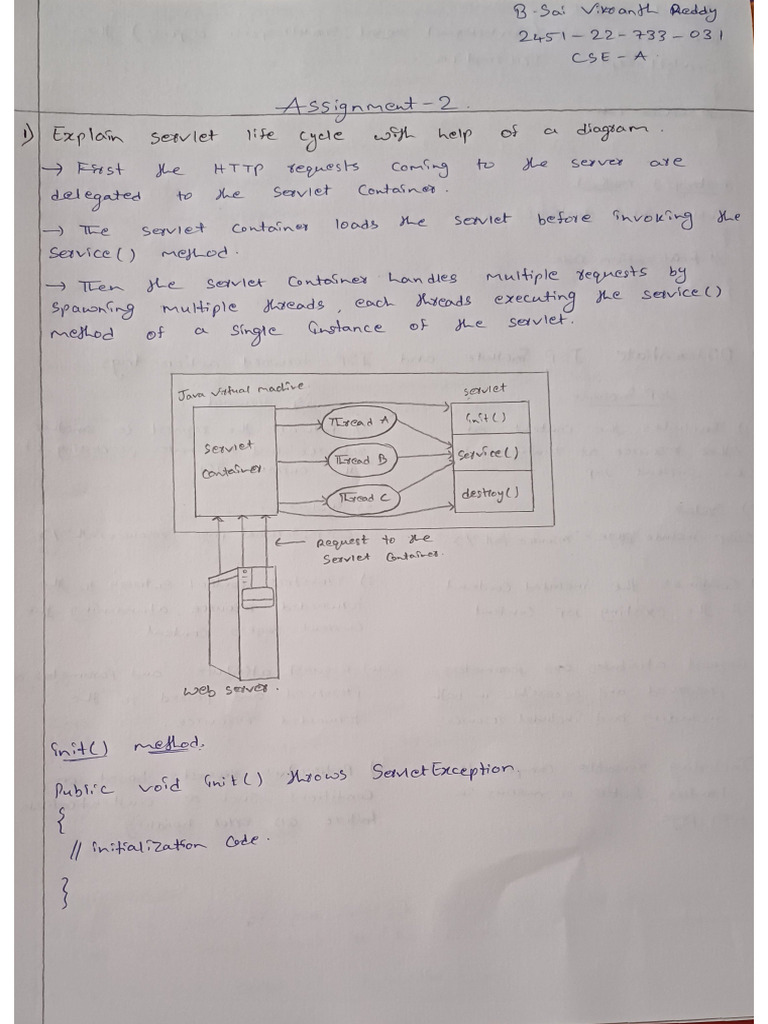 B. Sai Vikranth Reddy
2451-22-733-031
CSE-A
Assignment-2.
1) Explain servlet life cycle with help of a diagram.
→ First the HTTP requests coming to the server are
delegated to the servlet container.
→ The servlet container loads the servlet before invoking the
service() method.
→ Then the servlet container handles multiple requests by
spawning multiple threads, each threads executing the service()
method of a single instance of the servlet.
Java virtual machine
servlet
Servlet
container
Thread A
Thread B
Thread C
init()
service()
destroy()
← request to the
servlet container.
web server.
init() method.
Public void init() throws ServletException.
{
// initialization code.
}